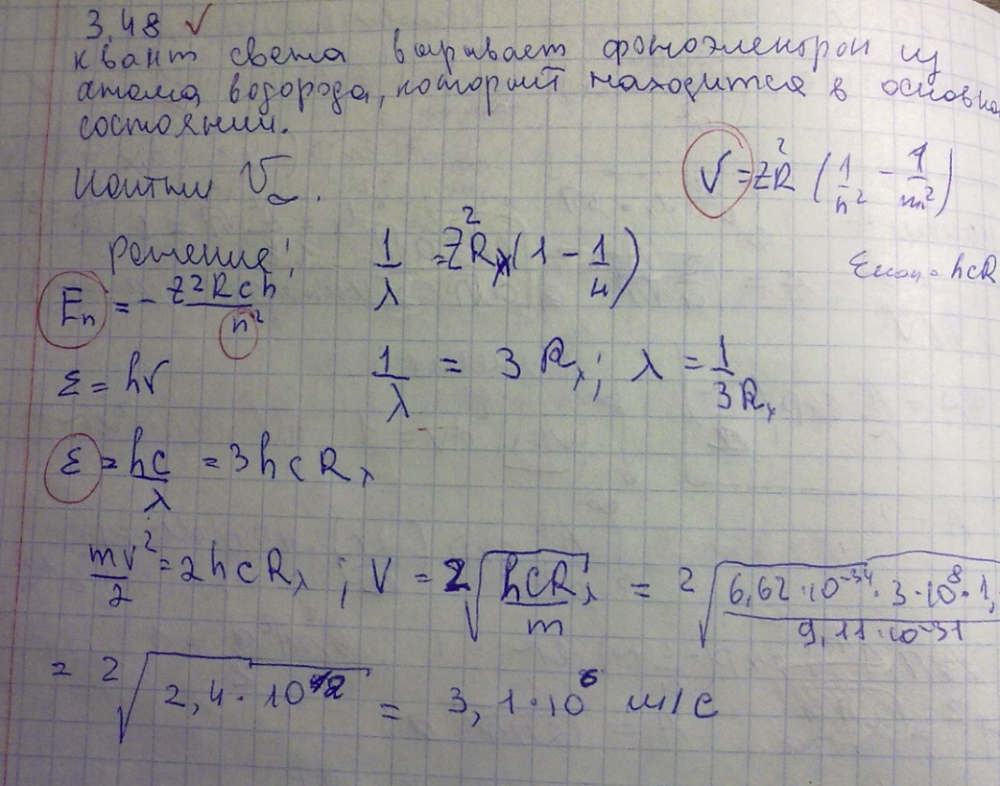 3.48 ✓
квант света вырывает фотоэлектрон из
атома водорода, который находится в основно
состоянии.
Найти V∞.
V = Z²R (1/n² - 1/m²)
Решение:
1/λ = Z²R (1 - 1/4)
En = - Z²Rch/n²
ε = hν
1/λ = 3 Rλ; λ = 1/3Rλ
ε = hc/λ = 3hcRλ
mv²/2 = 2hcRλ ; V = 2√(hcRλ/m) = 2√(6,62·10⁻³⁴·3·10⁸·1,/9,11·10⁻³¹)
= 2√(2,4·10¹²) = 3,1·10⁶ м/с